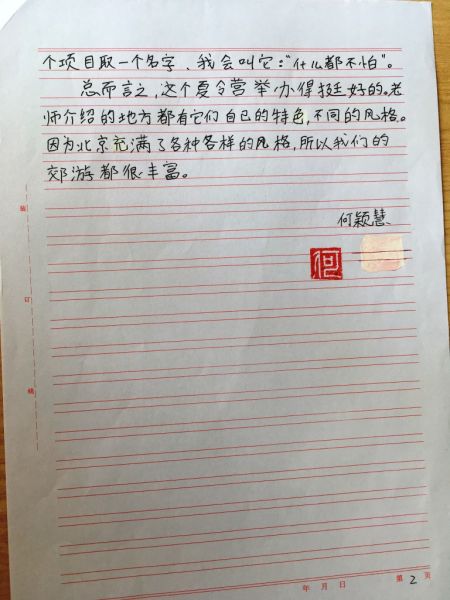 个项目取一个名字、我会叫它："什么都不怕"。
总而言之，这个夏令营举办得挺好的。老
师介绍的地方都有它们自己的特色，不同的风格。
因为北京充满了各种各样的风格，所以我们的
郊游都很丰富。
何颖慧
何
装
订
线
年 月 日
第 2 页